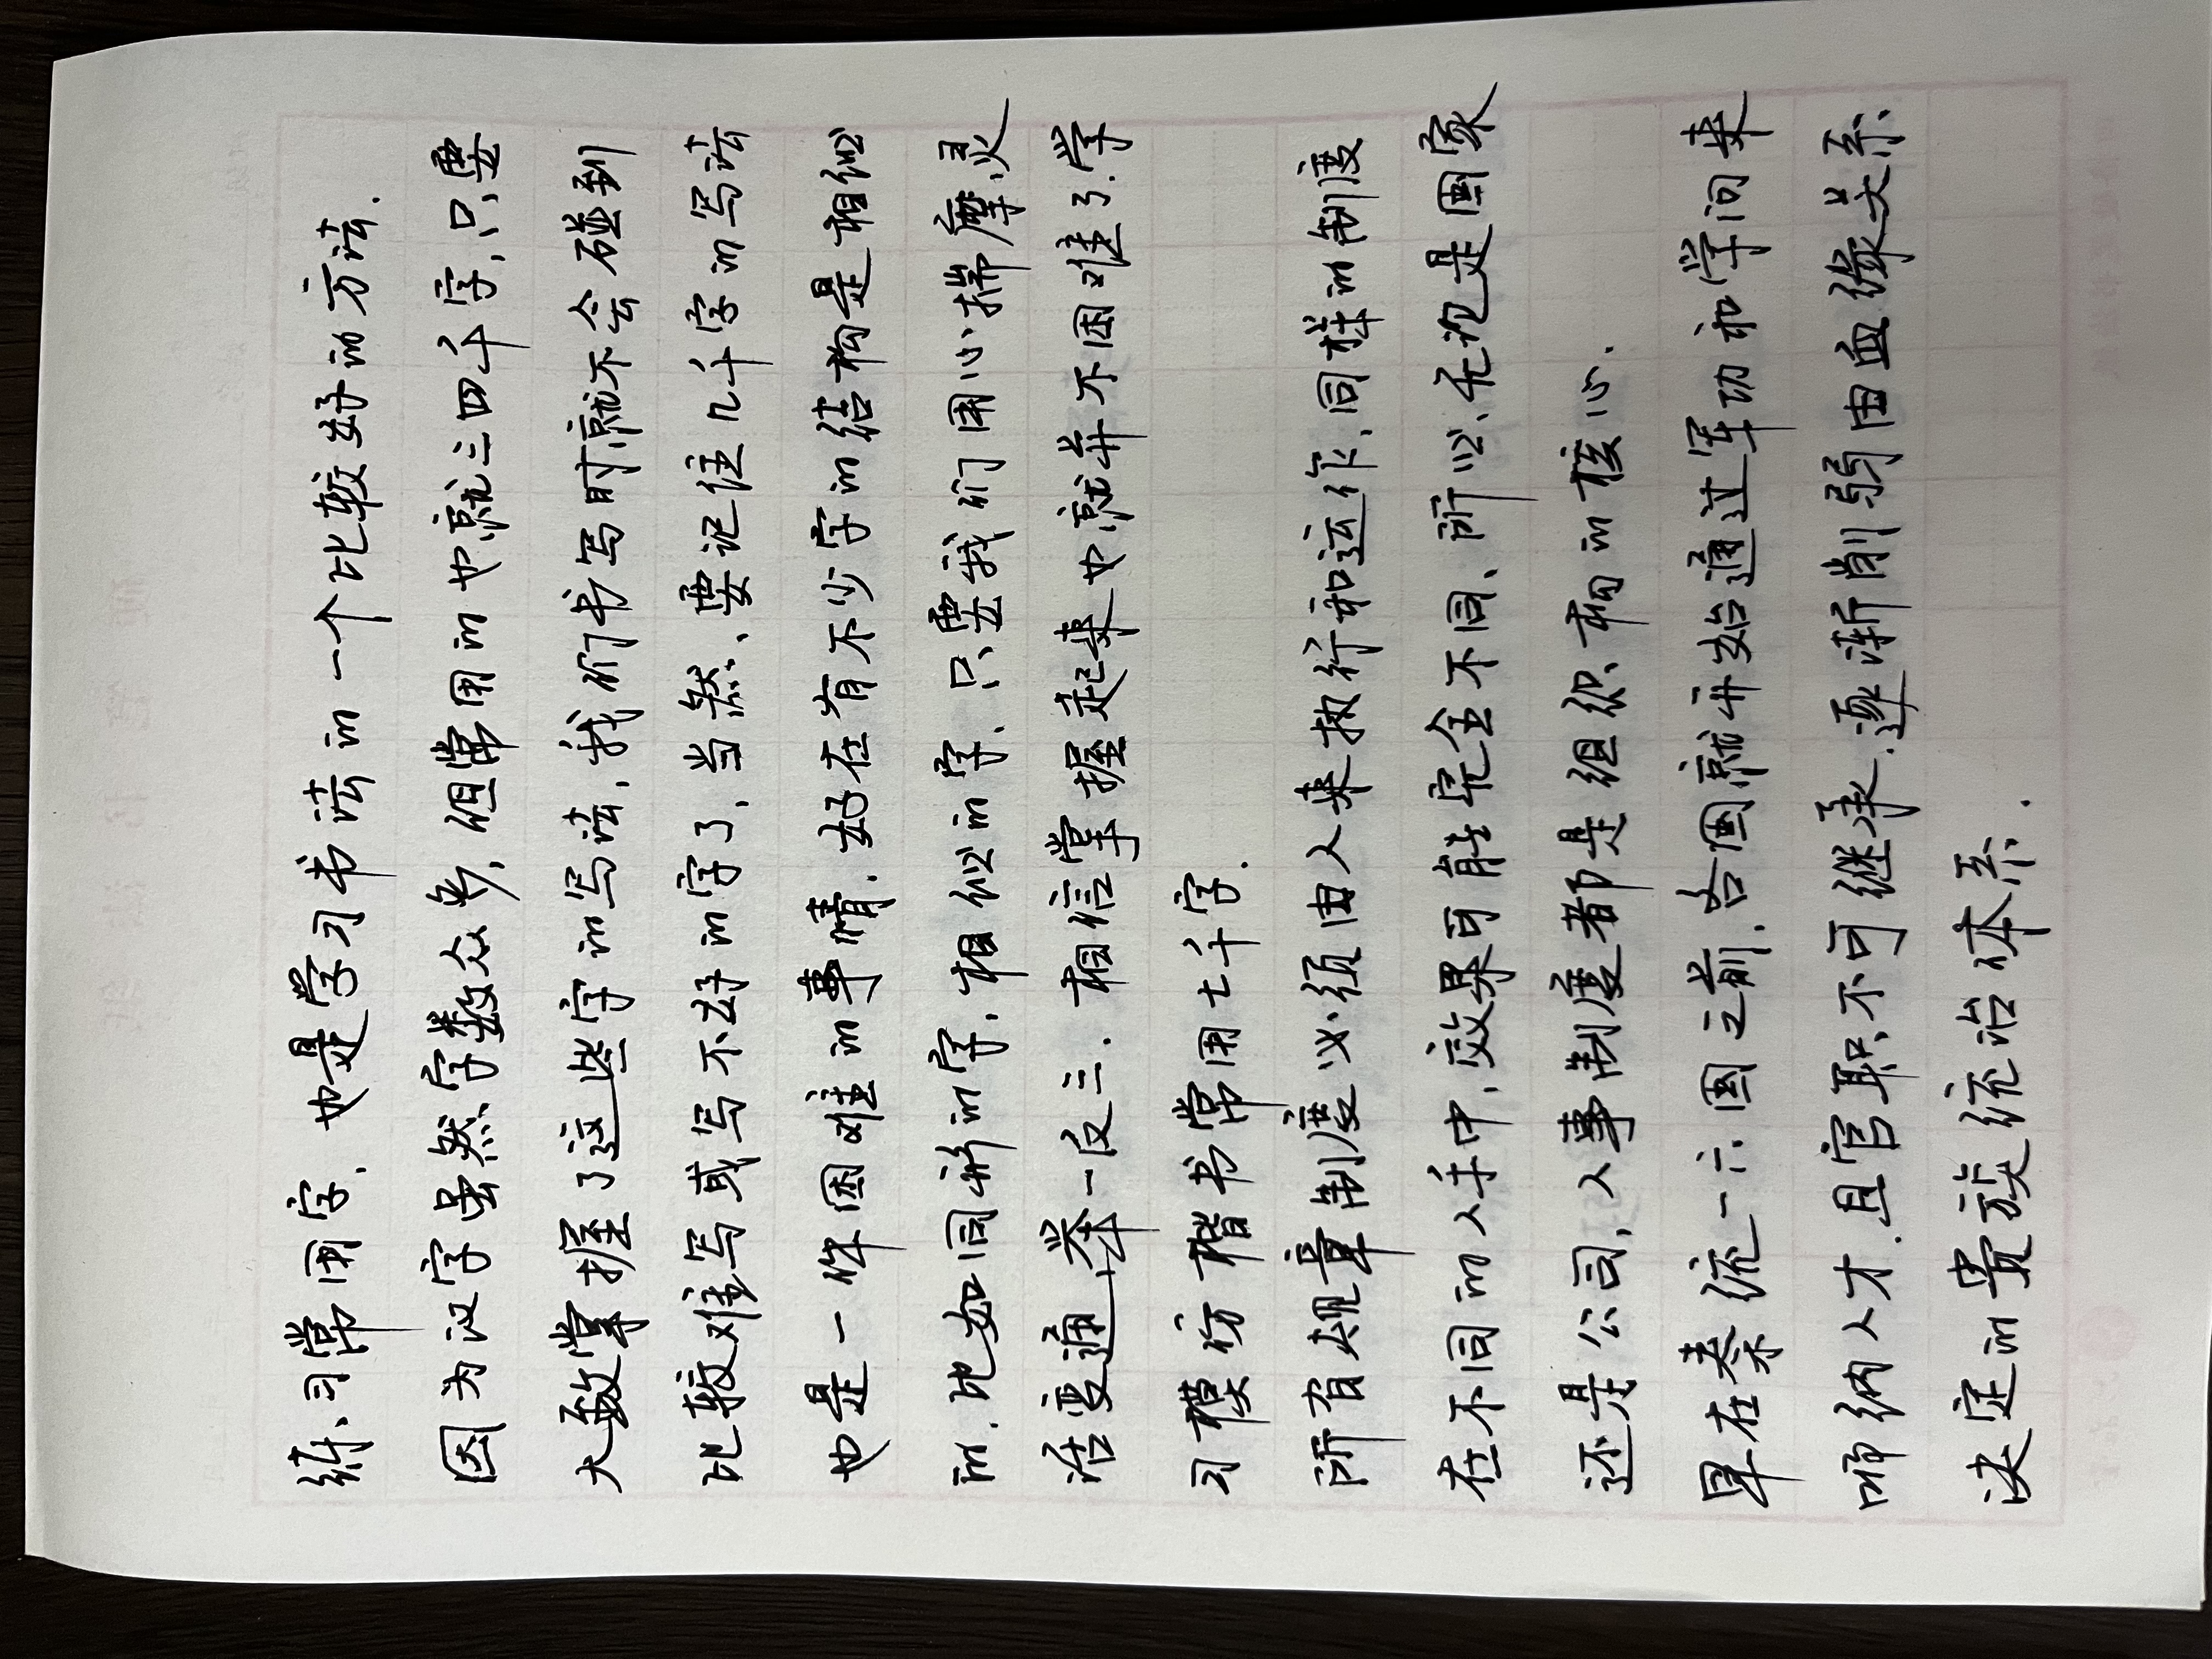 练习常用字，也是学习书法的一个比较好的方法.
因为汉字虽然字数众多，但常用的也就三四千字，只要
大致掌握了这些字的写法，我们书写时就不会碰到
比较难写或写不好的字了，当然，要记住几千字的写法
也是一件困难的事情.好在有不少字的结构是相似
的.比如同形的字，相似的字，只要我们用心揣摩，灵
活变通，举一反三.相信掌握起来也就并不困难了.学
习模仿楷书常用七千字.
所有规章制度必须由人来执行和运作、同样的制度
在不同的人手中，效果可能完全不同、所以、无论是国家
还是公司，人事制度都是组织架构的核心.
早在秦统一六国之前.各国就开始通过军功和学问来
吸纳人才.且官职不可继承.逐渐削弱由血缘关系
决定的贵族统治体系.